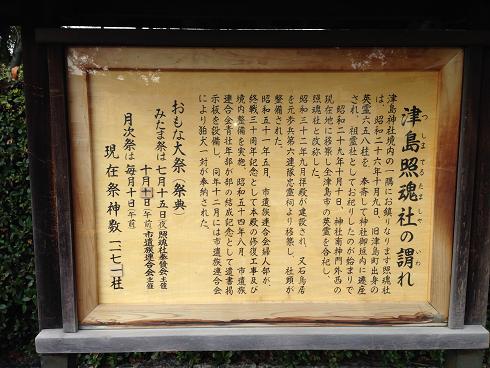 津島照魂社の謂れ
つしまてるたまやしろ いわ
津島神社境内の一隅にお鎮りなります照魂社
は、昭和二十六年十月九日、旧津島町出身の
英霊六五八柱を、奉斎して神社御垣内に遷座
され、祖霊社としてお祀りしたのが始まりで
昭和二十九年十月十日、神社南神門外西の
現在地に移築し全津島市の英霊を合祀し、
照魂社と改称した。
昭和三十二年九月拝殿が建設され、又石鳥居
を元歩兵第六連隊忠霊祠より移築し、社頭が
整備された。
昭和五十一年五月、市遺族連合会婦人部が、
終戦三十周年記念として本殿の修復工事及び
境内整備を実施、昭和五十四年八月、市遺族
連合会青壮年部が部の結成記念として遺書掲
示板を設備し、同年十二月には市遺族連合会
により狛犬一対が奉納された。
おもな大祭（祭典）
みたま祭は 七月十五日夜 照魂社奉賛会主催
十月十日（午前）市遺族連合会主催
月次祭は 毎月十日（午前）
現在祭神数 一一七一柱